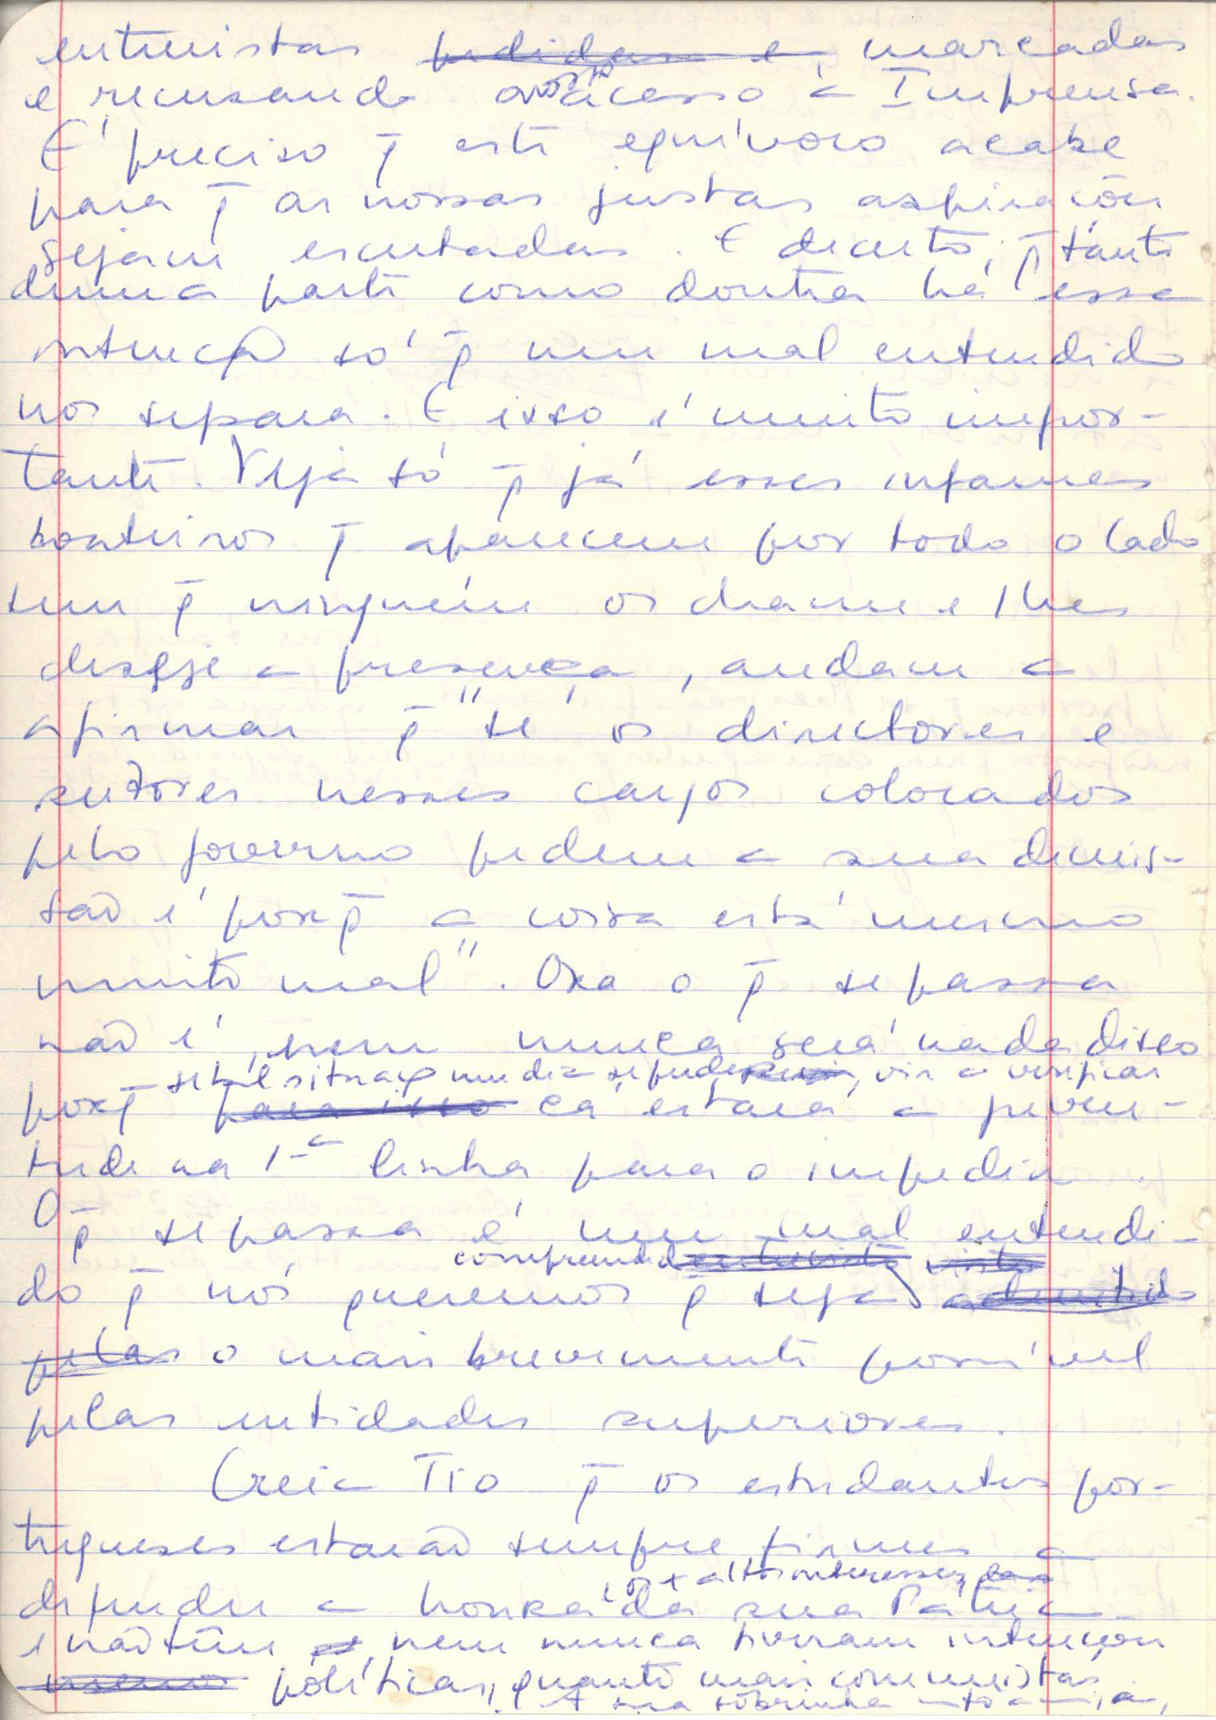 entrevistas marcadas
e recusando o nosso acesso à Imprensa.
É preciso q̄ este equívoco acabe
para q̄ as nossas justas aspirações
sejam escutadas. E decerto, q̄ tanto
duma parte como doutra há essa
intenção só q̄ um mal entendido
nos separa. E isso é muito impor-
tante. Veja só q̄ já esses infames
boateiros q̄ aparecem por todo o lado
sem q̄ ninguém os chame e lhes
deseje a presença, andam a
afirmar q̄ "se os directores e
reitores nesses cargos colocados
pelo governo pedem a sua demis-
são é porq̄ a coisa está mesmo
muito mal". Ora o q̄ se passa
não é, nem nunca será nada disso
porq̄ se tal situação um dia se pudesse, vir a verificar
cá estará a juven-
tude na 1ª linha para o impedir.
O q̄ se passa é um mal entendi-
do q̄ nós queremos q̄ seja compreendido
o mais brevemente possível
pelas entidades superiores.
Creia Tio q̄ os estudantes por-
tugueses estarão sempre firmes a
defender a honra e os + altos interesses da sua Pátria
e não têm nem nunca tiveram intenções
políticas, quanto mais comunistas.
A sua sobrinha mto amiga,